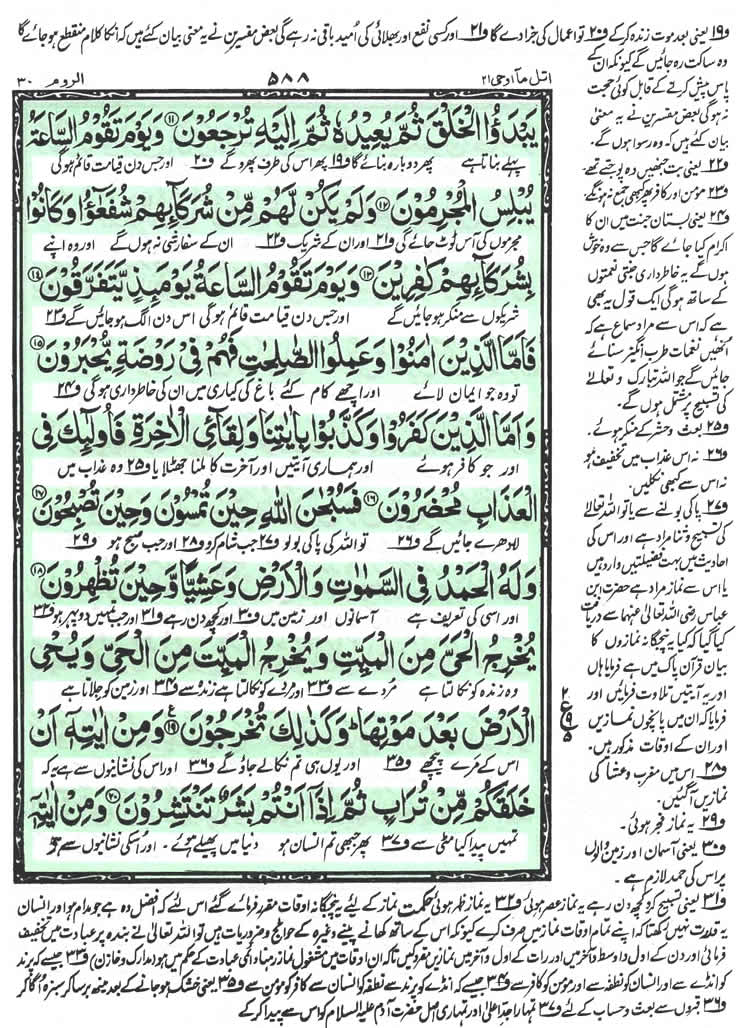 ف۱۹ یعنی بعد موت زندہ کر کے ف۲۰ تو اعمال کی جزا دے گا ف۲۱ اور کسی نفع اور بھلائی کی اُمید باقی نہ رہے گی بعض مفسرین نے یہ معنی بیان کئے ہیں کہ انکا کلام منقطع ہو جائے گا
وہ ساکت رہ جائیں گے کیونکہ ان کے
پاس پیش کرنے کے قابل کوئی حجت
نہ ہوگی بعض مفسرین نے یہ معنی
بیان کئے ہیں کہ وہ رسوا ہوں گے۔
ف۲۲ یعنی بت جنھیں وہ پوجتے تھے۔
ف۲۳ مؤمن اور کافر پھر کبھی جمع نہ ہونگے
ف۲۴ یعنی بُستانِ جنت میں ان کا
اکرام کیا جائے گا جس سے وہ خوش
ہوں گے یہ خاطرداری جنتی نعمتوں
کے ساتھ ہوگی ایک قول یہ بھی
ہے کہ اس سے مراد سماع ہے کہ
اُنھیں نغماتِ طرب انگیز سنائے
جائیں گے جو اللہ تبارک و تعالٰے
کی تسبیح پر مشتمل ہوں گے۔
ف۲۵ بعث و حشر کے منکر ہوئے۔
ف۲۶ نہ اس عذاب میں تخفیف ہو
نہ اس سے کبھی نکلیں۔
ف۲۷ پاکی بولنے سے یا تو اللہ تعالیٰ
کی تسبیح و ثنا مراد ہے اور اس کی
احادیث میں بہت فضیلتیں وارد ہیں
یا اس سے نماز مراد ہے حضرت ابن
عباس رضی اللہ تعالیٰ عنہما سے دریافت
کیا گیا کہ کیا پنجگانہ نمازوں کا
بیان قرآن پاک میں ہے فرمایا ہاں
اور یہ آیتیں تلاوت فرمائیں اور
فرمایا کہ ان میں پانچوں نمازیں
اور ان کے اوقات مذکور ہیں۔
ف۲۸ اس میں مغرب و عشا کی
نمازیں آ گئیں۔
ف۲۹ یہ نماز فجر ہوئی۔
ف۳۰ یعنی آسمان اور زمین والوں
پر اس کی حمد لازم ہے۔
اتل مآ اوحی ۲۱ ۵۸۸ الروم ۳۰
يَبْدَؤُا الْخَلْقَ ثُمَّ يُعِيْدُهٗ ثُمَّ اِلَيْهِ تُرْجَعُوْنَ ۝۱۱ وَيَوْمَ تَقُوْمُ السَّاعَةُ
پہلے بناتا ہے پھر دوبارہ بنائے گا ف۱۹ پھر اس کی طرف پھرو گے ف۲۰ اور جس دن قیامت قائم ہوگی
يُبْلِسُ الْمُجْرِمُوْنَ ۝۱۲ وَلَمْ يَكُنْ لَّهُمْ مِّنْ شُرَكَآئِهِمْ شُفَعٰٓؤُا وَكَانُوْا
مجرموں کی آس ٹوٹ جائے گی ف۲۱ اور ان کے شریک ف۲۲ ان کے سفارشی نہ ہوں گے اور وہ اپنے
بِشُرَكَآئِهِمْ كٰفِرِيْنَ ۝۱۳ وَيَوْمَ تَقُوْمُ السَّاعَةُ يَوْمَئِذٍ يَّتَفَرَّقُوْنَ ۝۱۴
شریکوں سے منکر ہو جائیں گے اور جس دن قیامت قائم ہوگی اس دن الگ ہو جائیں گے ف۲۳
فَاَمَّا الَّذِيْنَ اٰمَنُوْا وَعَمِلُوا الصّٰلِحٰتِ فَهُمْ فِيْ رَوْضَةٍ يُّحْبَرُوْنَ ۝۱۵
تو وہ جو ایمان لائے اور اچھے کام کئے باغ کی کیاری میں ان کی خاطرداری ہوگی ف۲۴
وَاَمَّا الَّذِيْنَ كَفَرُوْا وَكَذَّبُوْا بِاٰيٰتِنَا وَلِقَآئِ الْاٰخِرَةِ فَاُولٰٓئِكَ فِي
اور جو کافر ہوئے اور ہماری آیتیں اور آخرت کا ملنا جھٹلایا ف۲۵ وہ عذاب میں
الْعَذَابِ مُحْضَرُوْنَ ۝۱۶ فَسُبْحٰنَ اللّٰهِ حِيْنَ تُمْسُوْنَ وَحِيْنَ تُصْبِحُوْنَ ۝۱۷
لا دھرے جائیں گے ف۲۶ تو اللہ کی پاکی بولو ف۲۷ جب شام کرو ف۲۸ اور جب صبح ہو ف۲۹
وَلَهُ الْحَمْدُ فِي السَّمٰوٰتِ وَالْاَرْضِ وَعَشِيًّا وَّحِيْنَ تُظْهِرُوْنَ ۝۱۸
اور اسی کی تعریف ہے آسمانوں اور زمین میں ف۳۰ اور کچھ دن رہے ف۳۱ اور جب تمہیں دوپہر ہو ف۳۲
يُخْرِجُ الْحَيَّ مِنَ الْمَيِّتِ وَيُخْرِجُ الْمَيِّتَ مِنَ الْحَيِّ وَيُحْيِ
وہ زندہ کو نکالتا ہے مُردے سے ف۳۳ اور مُردے کو نکالتا ہے زندہ سے ف۳۴ اور زمین کو جِلاتا ہے
الْاَرْضَ بَعْدَ مَوْتِهَا ؕ وَكَذٰلِكَ تُخْرَجُوْنَ ۝۱۹ع وَمِنْ اٰيٰتِهٖٓ اَنْ
اس کے مرے پیچھے ف۳۵ اور یوں ہی تم نکالے جاؤ گے ف۳۶ اور اس کی نشانیوں سے ہے یہ کہ
خَلَقَكُمْ مِّنْ تُرَابٍ ثُمَّ اِذَآ اَنْتُمْ بَشَرٌ تَنْتَشِرُوْنَ ۝۲۰ وَمِنْ اٰيٰتِهٖٓ
تمہیں پیدا کیا مٹی سے ف۳۷ پھر جبھی تم انسان ہو دنیا میں پھیلے ہوئے۔ اور اُسکی نشانیوں سے ہے
ف۳۱ یعنی تسبیح کرو کچھ دن رہے یہ نماز عصر ہوئی ف۳۲ یہ نماز ظہر ہوئی حکمت نماز کے لئے یہ پنجگانہ اوقات مقرر فرمائے گئے اس لئے کہ افضل وہ ہے جو مدام ہو اور انسان
یہ قدرت نہیں رکھتا کہ اپنے تمام اوقات نماز میں صرف کرے کیونکہ اس کے ساتھ کھانے پینے وغیرہ کے حوائج و ضروریات ہیں تو اللہ تعالیٰ نے بندہ پر عبادت میں تخفیف
فرمائی اور دن کے اول و اوسط و آخر میں اور رات کے اول و آخر میں نمازیں مقرر کیں تاکہ ان اوقات میں مشغولِ نماز رہنا دائمی عبادت کے حکم میں ہو (مدارک و خازن) ف۳۳ جیسے کہ پرند
کو انڈے سے اور انسان کو نطفہ سے اور مؤمن کو کافر سے ف۳۴ جیسے کہ انڈے کو پرند سے نطفہ کو انسان سے کافر کو مؤمن سے ف۳۵ یعنی خشک ہو جانے کے بعد مینھ برسا کر سبزہ اُگا کر
ف۳۶ قبروں سے بعث و حساب کے لئے ف۳۷ تمہارا جدِّ اعلیٰ اور تمہاری اصل حضرت آدم علیہ السلام کو اس سے پیدا کر کے